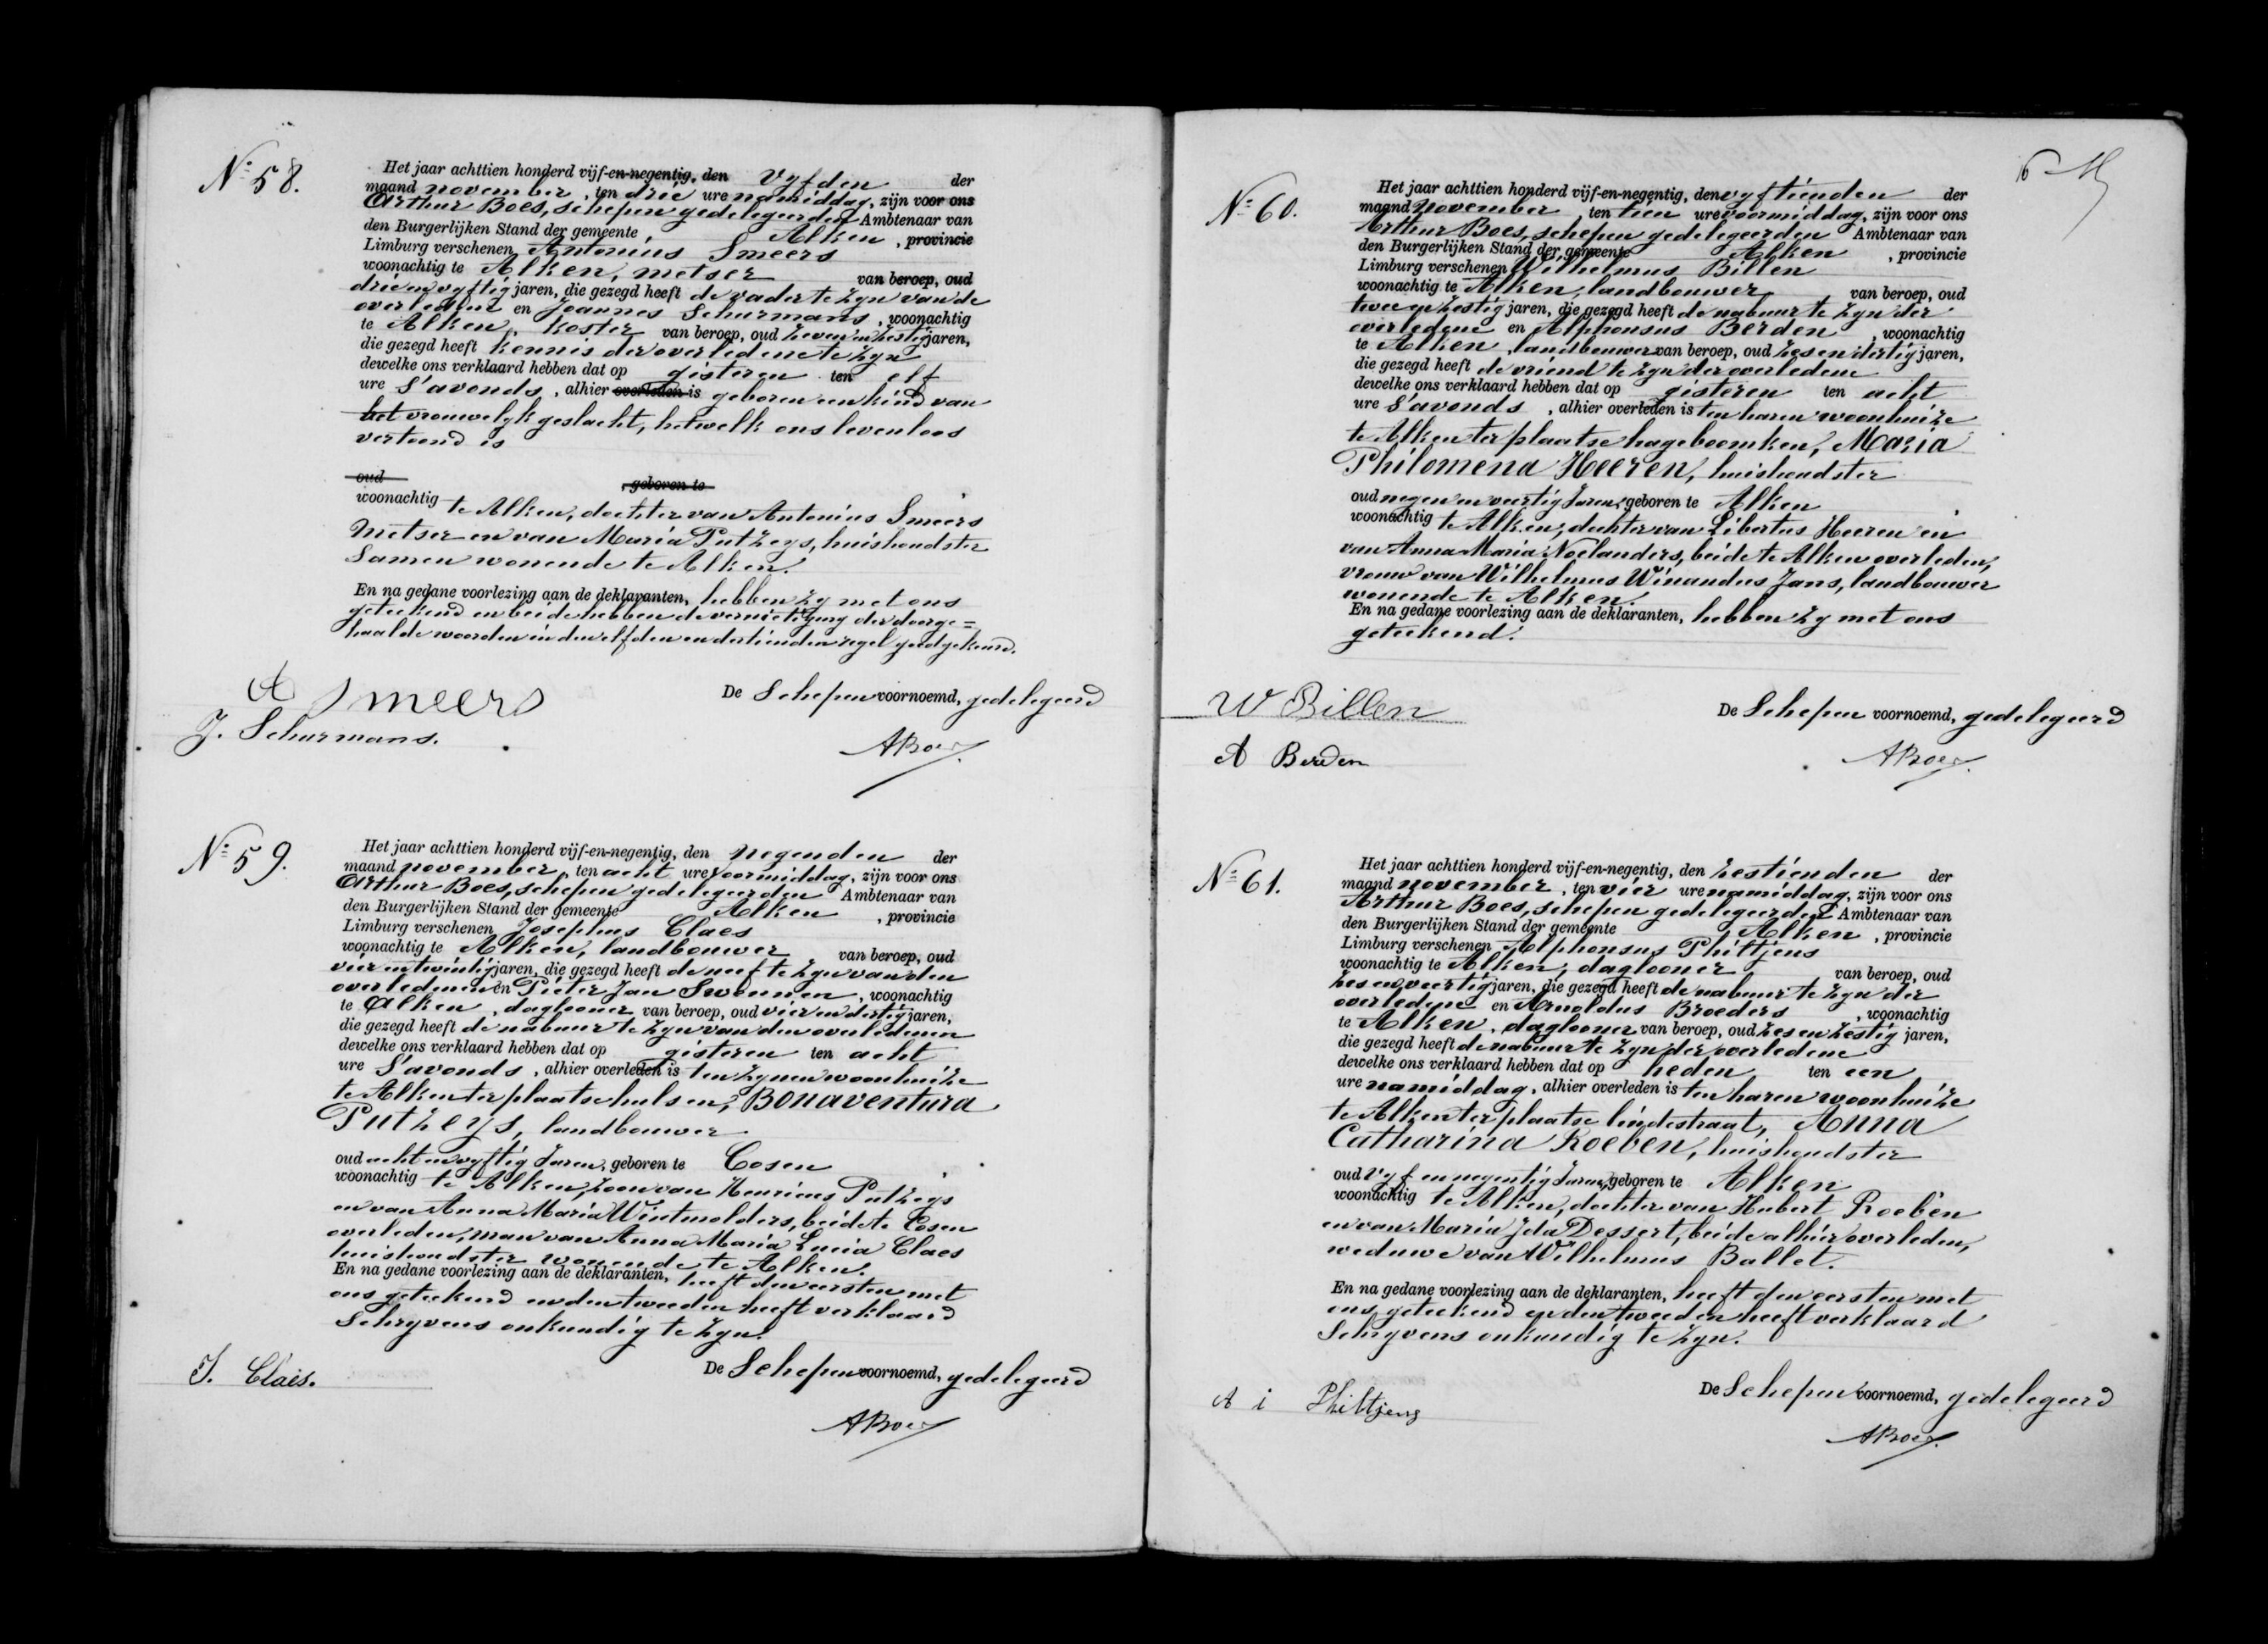 N° 58.
Het jaar achttien honderd vijf-en-negentig, den Vyfden der
maand november, ten drie ure namiddag, zijn voor ons
Arthur Boes, schepen gedelegeerden Ambtenaar van
den Burgerlijken Stand der gemeente Alken, provincie
Limburg verschenen Antonius Smeers
woonachtig te Alken, metser van beroep, oud
drie en vyftig jaren, die gezegd heeft de vader te zyn van de
overledene en Joannes Schurmans, woonachtig
te Alken, koster van beroep, oud zeven en zestig jaren,
die gezegd heeft kennis der overledene te zyn
dewelke ons verklaard hebben dat op gisteren ten elf
ure S'avonds, alhier overleden is geboren een kind van
het vrouwelyk geslacht, hetwelk ons levenloos
vertoond is
oud , geboren te
woonachtig te Alken, dochter van Antonius Smeers
Metser en van Maria Putzeys, huishoudster
Samen wonende te Alken.
En na gedane voorlezing aan de deklaranten, hebben zy met ons
geteekend en beide hebben de vernietiging der doorge=
haalde woorden in den elfden en dertienden regel goedgekeurd.
A Smeers
J. Schurmans.
De Schepen voornoemd, gedelegeerd
ABoes
N° 59.
Het jaar achttien honderd vijf-en-negentig, den negenden der
maand november, ten acht ure voormiddag, zijn voor ons
Arthur Boes, schepen gedelegeerden Ambtenaar van
den Burgerlijken Stand der gemeente Alken, provincie
Limburg verschenen Josephus Claes
woonachtig te Alken, landbouwer van beroep, oud
vier en twintig jaren, die gezegd heeft de neef te zyn van den
overledenen en Pieter Jan Swennen, woonachtig
te Alken, daglooner van beroep, oud vier en dertig jaren,
die gezegd heeft de nabuur te zyn van den overledenen
dewelke ons verklaard hebben dat op gisteren ten acht
ure S'avonds, alhier overleden is ten zynen woonhuize
te Alken ter plaatse hulsen, Bonaventura
Putzeys, landbouwer
oud acht en vyftig Jaren, geboren te Cosen
woonachtig te Alken, zoon van Henricus Putzeys
en van Anna Maria Wintmolders, beide te Cosen
overleden, man van Anna Maria Lucia Claes
huishoudster wonende te Alken.
En na gedane voorlezing aan de deklaranten, heeft den eersten met
ons geteekend en den tweeden heeft verklaard
Schryvens onkundig te zyn.
J. Claes.
De Schepen voornoemd, gedelegeerd
ABoes
N° 60.
Het jaar achttien honderd vijf-en-negentig, den vyftienden der
maand november, ten tien ure voormiddag, zijn voor ons
Arthur Boes, schepen gedelegeerden Ambtenaar van
den Burgerlijken Stand der gemeente Alken, provincie
Limburg verschenen Wilhelmus Billen
woonachtig te Alken, landbouwer van beroep, oud
twee en zestig jaren, die gezegd heeft de nabuur te zyn der
overledene en Alphonsus Berden, woonachtig
te Alken, landbouwer van beroep, oud zes en dertig jaren,
die gezegd heeft de vriend te zyn der overledene
dewelke ons verklaard hebben dat op gisteren ten acht
ure S'avonds, alhier overleden is ten haren woonhuize
te Alken ter plaatse hageboomken, Maria
Philomena Heeren, huishoudster
oud negen en veertig Jaren, geboren te Alken
woonachtig te Alken, dochter van Libertus Heeren en
van Anna Maria Noelanders, beide te Alken overleden,
vrouw van Wilhelmus Winandus Jans, landbouwer
wonende te Alken.
En na gedane voorlezing aan de deklaranten, hebben zy met ons
geteekend.
W Billen
A Berden
De Schepen voornoemd, gedelegeerd
ABoes
N° 61.
Het jaar achttien honderd vijf-en-negentig, den zestienden der
maand november, ten vier ure namiddag, zijn voor ons
Arthur Boes, schepen gedelegeerden Ambtenaar van
den Burgerlijken Stand der gemeente Alken, provincie
Limburg verschenen Alphonsus Philtjens
woonachtig te Alken, daglooner van beroep, oud
zes en veertig jaren, die gezegd heeft de nabuur te zyn der
overledene en Arnoldus Broeders, woonachtig
te Alken, daglooner van beroep, oud zes en zestig jaren,
die gezegd heeft de nabuur te zyn der overledene
dewelke ons verklaard hebben dat op heden ten een
ure namiddag, alhier overleden is ten haren woonhuize
te Alken ter plaatse lindestraat, Anna
Catharina Roeben, huishoudster
oud vyf en negentig Jaren, geboren te Alken
woonachtig te Alken, dochter van Hubert Roeben
en van Maria Ida Dessert, beide alhier overleden,
weduwe van Wilhelmus Ballet.
En na gedane voorlezing aan de deklaranten, heeft den eersten met
ons geteekend en den tweeden heeft verklaard
Schryvens onkundig te zyn.
A i Philtjens
De Schepen voornoemd, gedelegeerd
ABoes